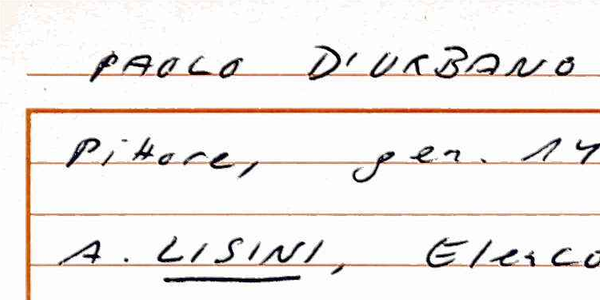 PAOLO D'URBANO
Pittore, gen. 14
A. LISINI, Elenco